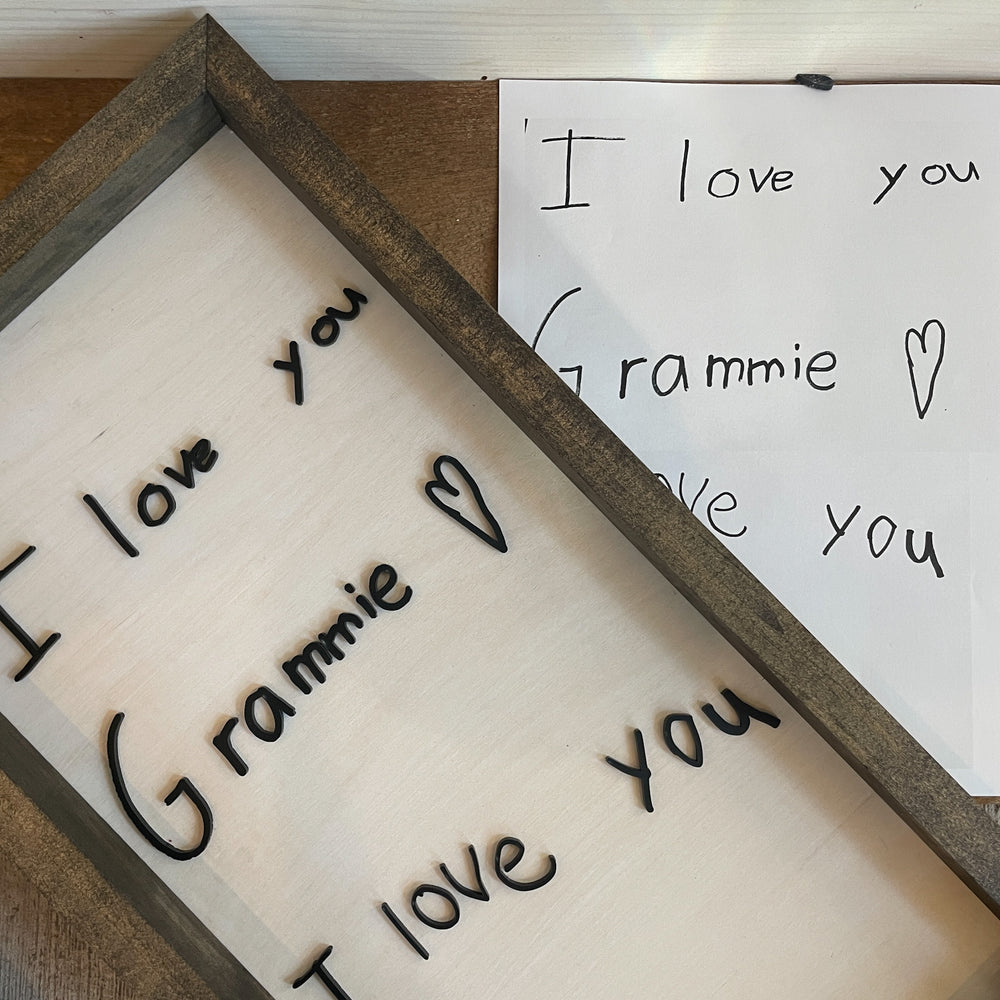 I love you
Grammie
I love you
I love you
Grammie
ve you